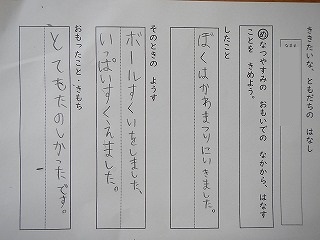 ききたいな、ともだちの はなし
なまえ
め なつやすみの おもいでの なかから、はなす
ことを きめよう。
したこと
ぼくはかわまつりにいきました。
そのときの ようす
ボールすくいをしました、
いっぱいすくえました。
おもったこと・きもち
とてもたのしかったです。